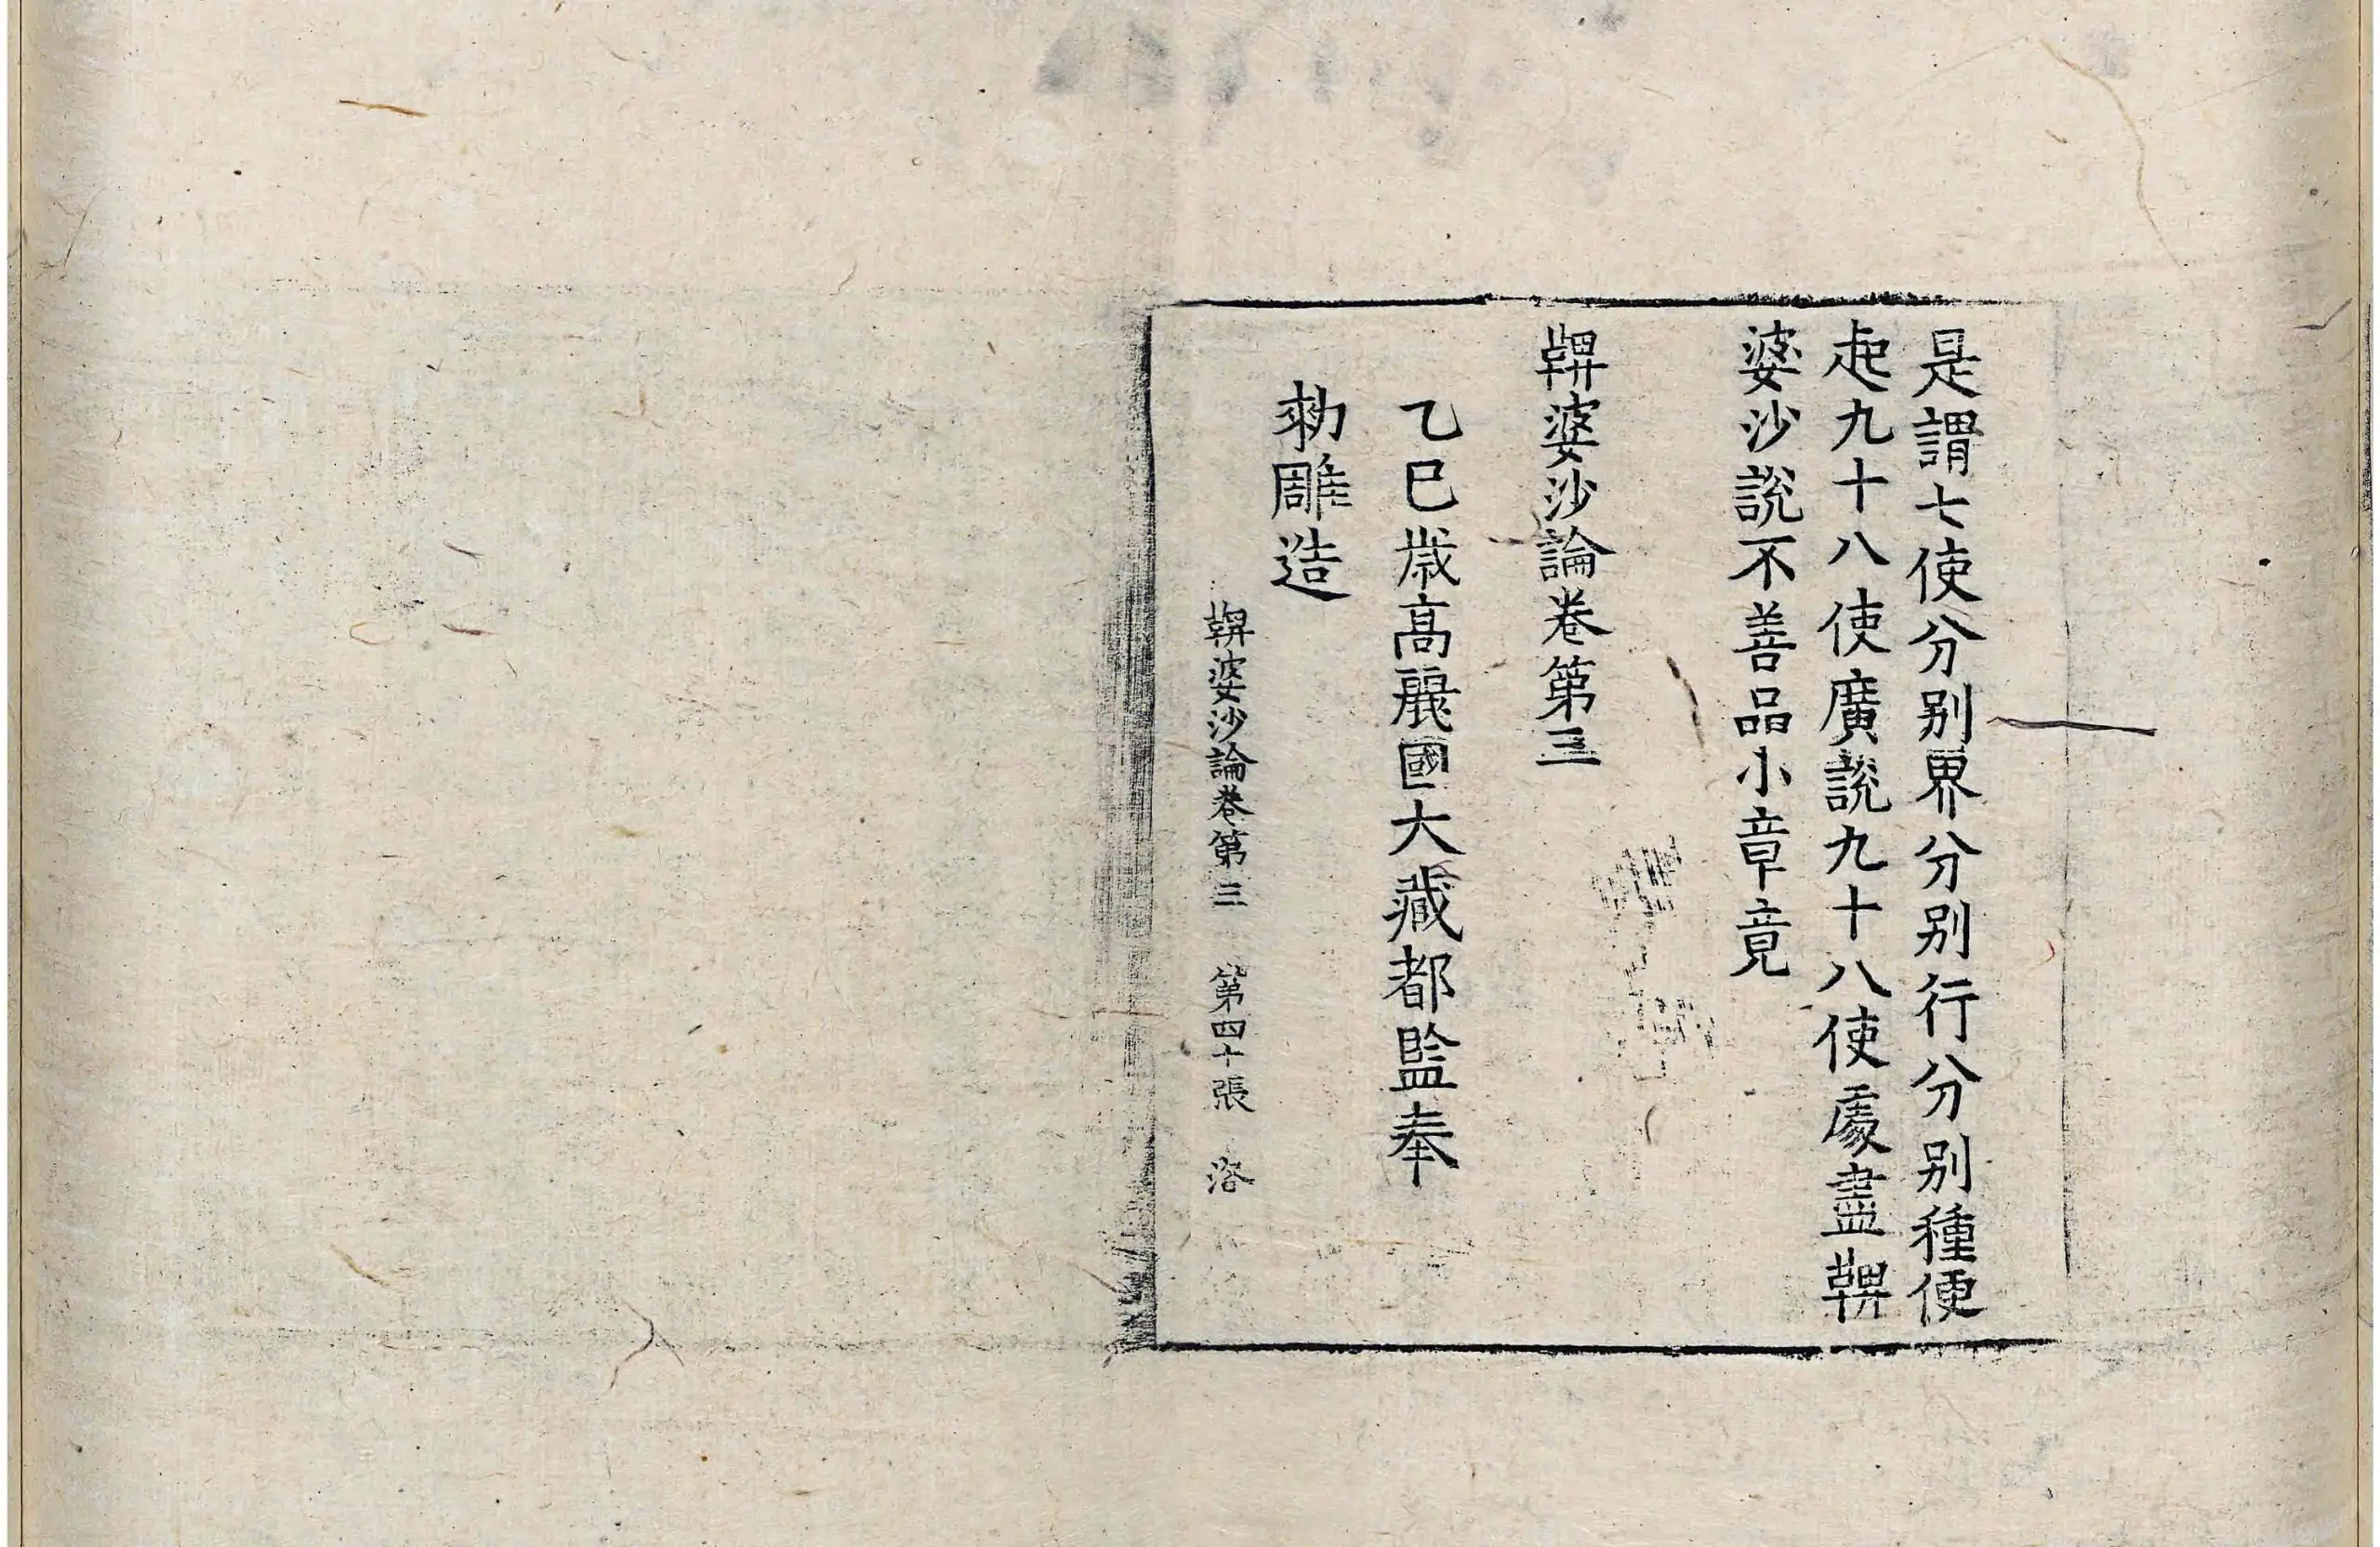 是謂七使分別界分別行分別種便
起九十八使廣說九十八使處盡鞞
婆沙說不善品小章竟
鞞婆沙論卷第三
乙巳歲高麗國大藏都監奉
勑雕造
鞞婆沙論卷第三 第四十張 溶